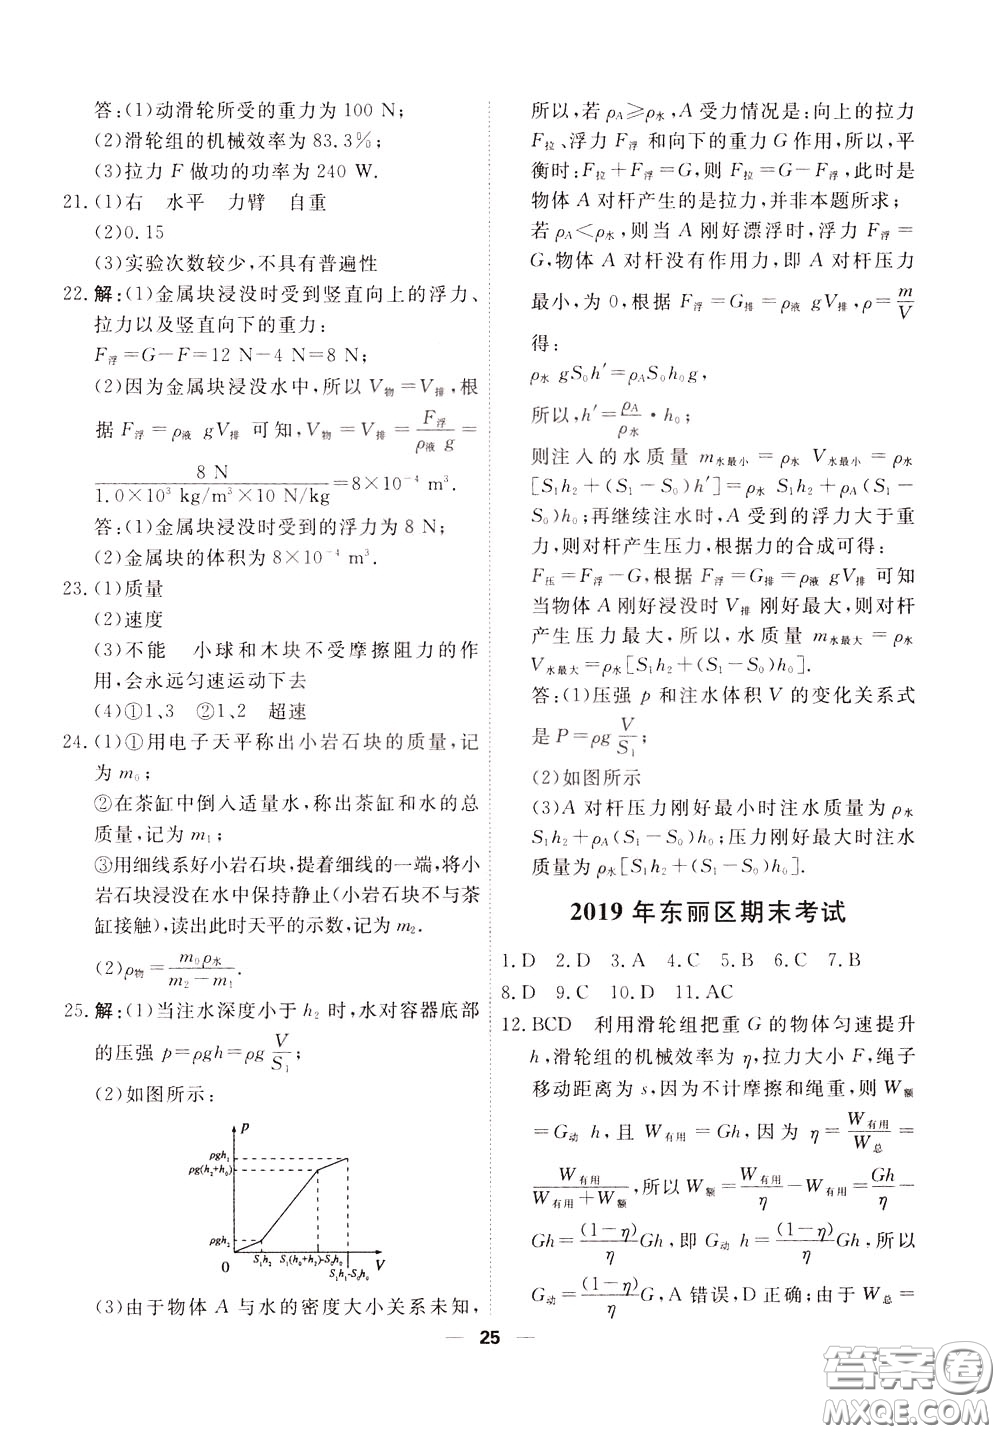 答:(1)动滑轮所受的重力为100 N;
(2)滑轮组的机械效率为83.3%;
(3)拉力 F 做功的功率为240 W.
21.(1)右 水平 力臂 自重
(2)0.15
(3)实验次数较少,不具有普遍性
22.解:(1)金属块浸没时受到竖直向上的浮力、
拉力以及竖直向下的重力:
F浮=G-F=12 N-4 N=8 N;
(2)因为金属块浸没水中,所以 V物=V排,根
据 F浮=ρ液 gV排 可知,V物=V排=F浮/(ρ液 g)=
8 N/(1.0×10³ kg/m³×10 N/kg)=8×10⁻⁴ m³.
答:(1)金属块浸没时受到的浮力为8 N;
(2)金属块的体积为8×10⁻⁴ m³.
23.(1)质量
(2)速度
(3)不能 小球和木块不受摩擦阻力的作
用,会永远匀速运动下去
(4)①1、3 ②1、2 超速
24.(1)①用电子天平称出小岩石块的质量,记
为 m₀;
②在茶缸中倒入适量水,称出茶缸和水的总
质量,记为 m₁;
③用细线系好小岩石块,提着细线的一端,将小
岩石块浸没在水中保持静止(小岩石块不与茶
缸接触),读出此时天平的示数,记为 m₂.
(2)ρ物=m₀ρ水/(m₂-m₁).
25.解:(1)当注水深度小于 h₂ 时,水对容器底部
的压强 p=ρgh=ρg V/S₁;
(2)如图所示:
p
ρgh₁
ρg(h₂+h₀)
ρgh₂
0 S₁h₂ S₁(h₀+h₂)-S₀h₀ V
S₁h₁-S₀h₀
(3)由于物体 A 与水的密度大小关系未知,
所以,若 ρA≥ρ水,A 受力情况是:向上的拉力
F拉、浮力 F浮 和向下的重力 G 作用,所以,平
衡时:F拉+F浮=G,则 F拉=G-F浮,此时是
物体 A 对杆产生的是拉力,并非本题所求;
若 ρA<ρ水,则当 A 刚好漂浮时,浮力 F浮=
G,物体 A 对杆没有作用力,即 A 对杆压力
最小,为 0,根据 F浮=G排=ρ液 gV排,ρ=m/V
得:
ρ水 gS₀h′=ρAS₀h₀g,
所以,h′=ρA/ρ水·h₀;
则注入的水质量 m水最小=ρ水 V水最小=ρ水
[S₁h₂+(S₁-S₀)h′]=ρ水 S₁h₂+ρA(S₁-
S₀)h₀;再继续注水时,A 受到的浮力大于重
力,则对杆产生压力,根据力的合成可得:
F压=F浮-G,根据 F浮=G排=ρ液 gV排 可知
当物体 A 刚好浸没时 V排 刚好最大,则对杆
产生压力最大,所以,水质量 m水最大=ρ水
V水最大=ρ水[S₁h₂+(S₁-S₀)h₀].
答:(1)压强 p 和注水体积 V 的变化关系式
是 P=ρg V/S₁;
(2)如图所示
(3)A 对杆压力刚好最小时注水质量为 ρ水
S₁h₂+ρA(S₁-S₀)h₀;压力刚好最大时注水
质量为 ρ水[S₁h₂+(S₁-S₀)h₀].
2019 年东丽区期末考试
1.D 2.D 3.A 4.C 5.B 6.C 7.B
8.D 9.C 10.D 11.AC
12.BCD 利用滑轮组把重 G 的物体匀速提升
h,滑轮组的机械效率为 η,拉力大小 F,绳子
移动距离为 s,因为不计摩擦和绳重,则 W额
=G动 h,且 W有用=Gh,因为 η=W有用/W总=
W有用/(W有用+W额),所以 W额=W有用/η-W有用=Gh/η-
Gh=(1-η)/η Gh,即 G动 h=(1-η)/η Gh,所以
G动=(1-η)/η G,A 错误,D 正确;由于 W总=
25
答案圈
MXQE.COM